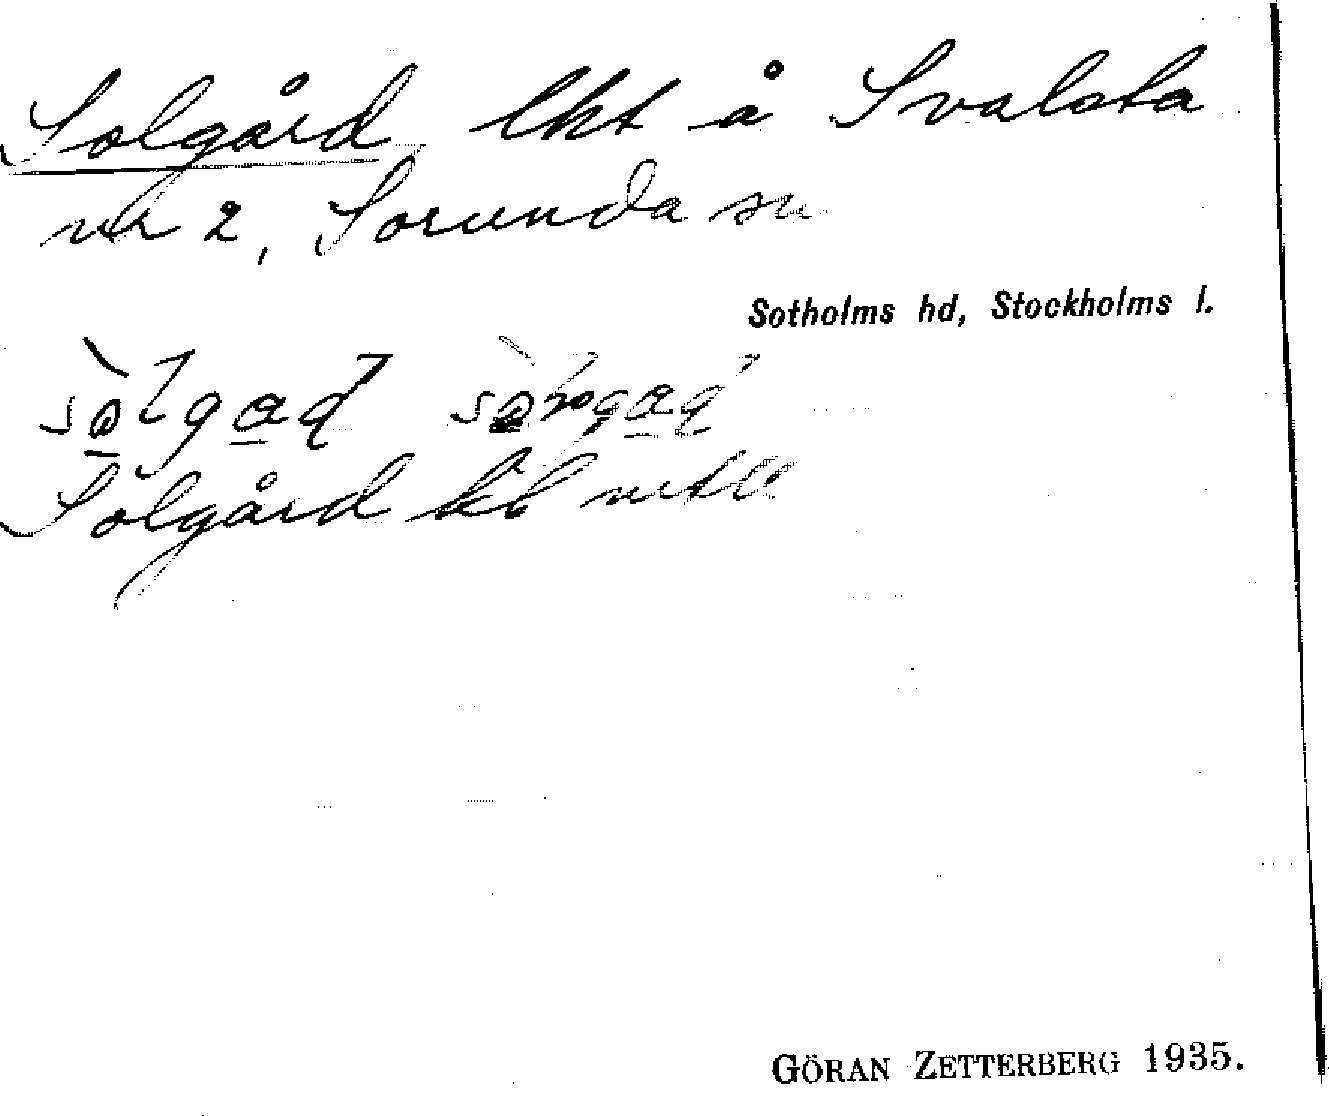 Solgård lht å Svalsta
nr 2, Sorunda sn
Sotholms hd, Stockholms l.
Solgård
GÖRAN ZETTERBERG 1935.